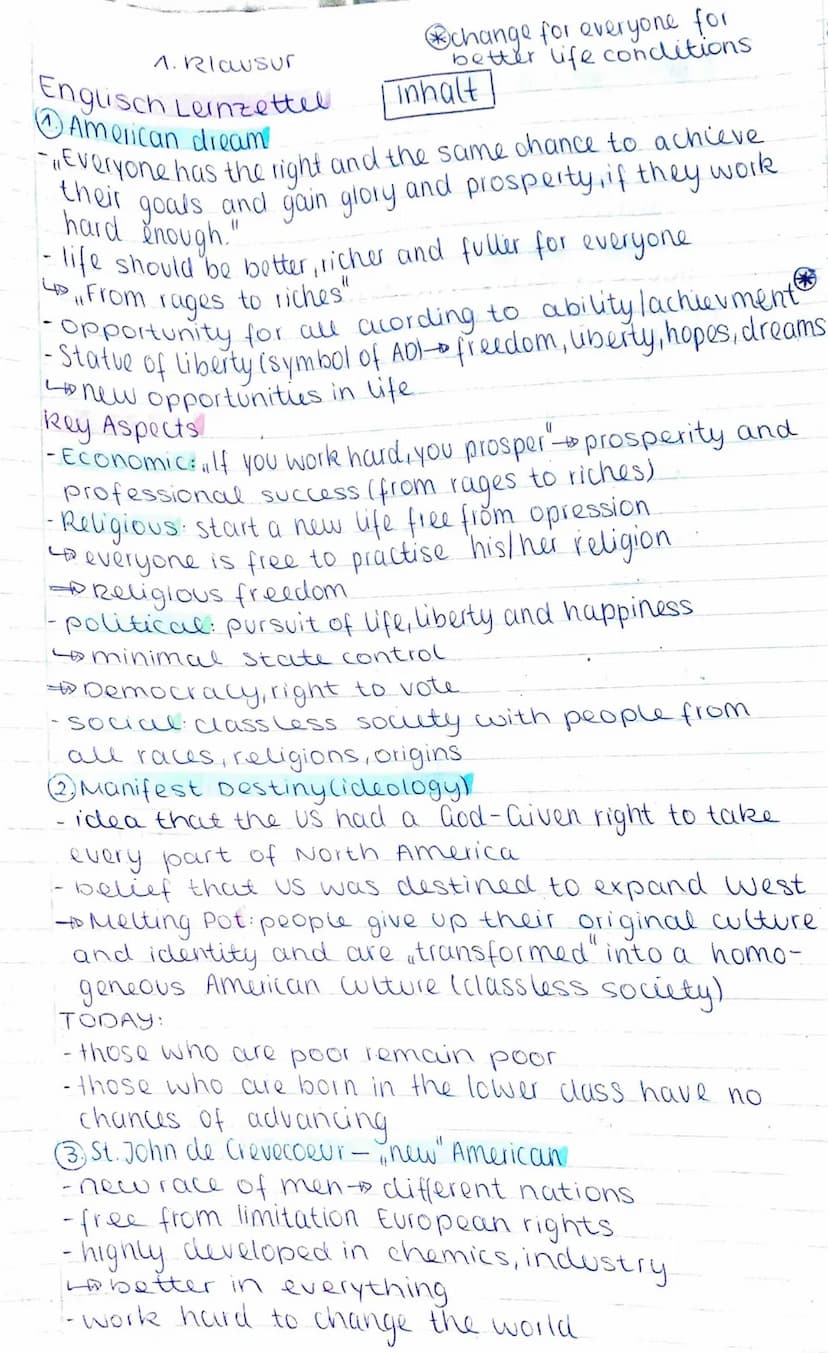 1. Klausur
⊛change for everyone for
better life conditions
Englisch Lernzettel
Inhalt
① American dream
- „Everyone has the right and the same chance to achieve
their goals and gain glory and prosperity, if they work
hard enough."
- life should be better, richer and fuller for everyone
↳ „From rages to riches"
- opportunity for all acording to ability/achievment⊛
- Statue of liberty (symbol of AD) → freedom, liberty, hopes, dreams
↳ new opportunities in life
Key Aspects
- Economic: „If you work hard, you prosper" → prosperity and
professional success (from rages to riches)
- Religious: start a new life free from opression
↳ everyone is free to practise his/her religion
⇒ Religious freedom
- political: pursuit of life, liberty and happiness
↳ minimal state control
⇒ Democracy, right to vote
- social: classless society with people from
all races, religions, origins
② Manifest Destiny (ideology)
- idea that the US had a God-Given right to take
every part of North America
- belief that US was destined to expand West
→ Melting Pot: people give up their original culture
and identity and are „transformed" into a homo-
geneous American culture (classless society)
TODAY:
- those who are poor remain poor
- those who are born in the lower class have no
chances of advancing
③ St. John de Crevecoeur – „new" American
- new race of men → different nations
- free from limitation European rights
- highly developed in chemics, industry
↳ better in everything
- work hard to change the world